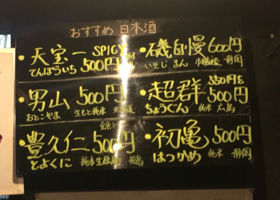 おすすめ 日本酒
・天宝一 SPICY
てんぽういち 500円
・磯自慢 600円
いそじまん 静岡
・男山 500円
おとこやま 生もと純米
・超群 550円
ちょうぐん 500円 純米 広島
・豊久仁 500円
とよくに 純米生原酒
・初亀 500円
はつかめ 純米 静岡